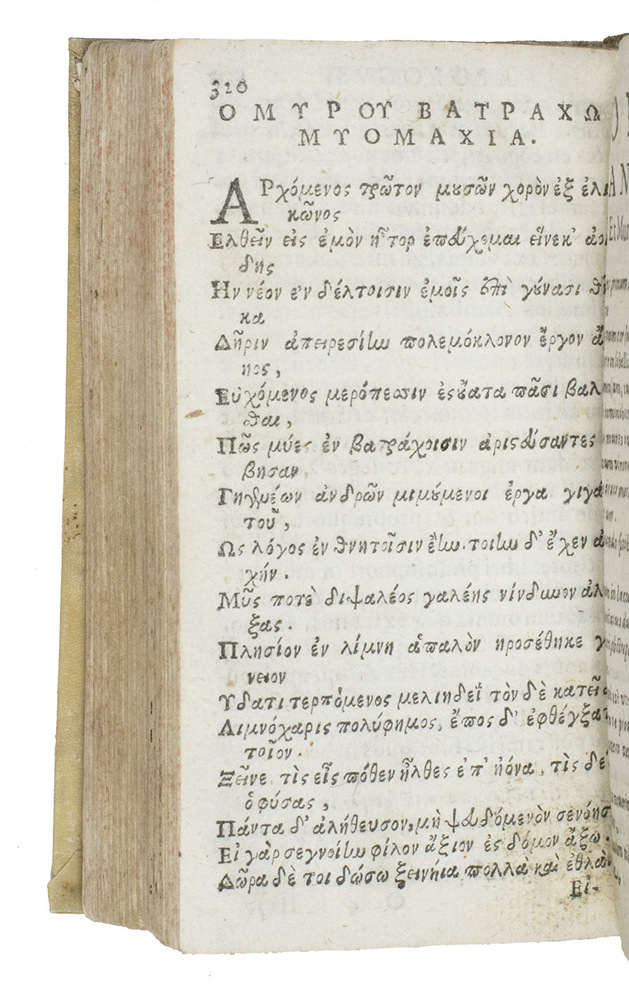 320
ΟΜΥΡΟΥ ΒΑΤΡΑΧΩ
ΜΥΟΜΑΧΙΑ.
ΑΡχόμενος πρῶτον μουσῶν χορὸν ἐξ ἑλι
κῶνος
Ελθεῖν εἰς ἐμὸν ἦτορ ἐπεύχομαι εἵνεκ' ἀοι
δῆς
Ην νέον ἐν δέλτοισιν ἐμοῖς ἐπὶ γούνασι θῆ
κα
Δῆριν ἀπειρεσίην πολεμόκλονον ἔργον ἄ
ηος,
Εὐχόμενος μερόπεσσιν ἐς οὔατα πᾶσι βαλ
θαι,
Πῶς μύες ἐν βατράχοισιν ἀριστεύσαντες
βησαν,
Γηγενέων ἀνδρῶν μιμούμενοι ἔργα γιγά
τοῦ,
Ως λόγος ἐν θνητοῖσιν ἔην. τοίην δ' ἔχεν ἀ
χήν.
Μῦς ποτὲ διψαλέος γαλέης νίνδυνον ἀλ
ξας.
Πλησίον ἐν λίμνη ἁπαλὸν ηροσέθηκε γ
νειον
Υδατι τερπόμενος μελιηδεῖ τὸν δὲ κατεῖ
Λιμνόχαρις πολύφημος, ἔπος δ' ἐφθέγξατ
τοῖον.
Ξεῖνε τὶς εἶς πόθεν ἦλθες ἐπ' ηόνα, τὶς δε
ὁφύσας,
Πάντα δ' ἀλήθευσον, μὴ ψευδόμενὸν σενόησ
Εἰ γὰρ σεγνοίην φίλον ἄξιον ἐς δόμον ἄξω.
Δῶρα δὲ τοι δώσω ξεινηια πολλὰ καὶ ἐθλὰ
Εἰ-